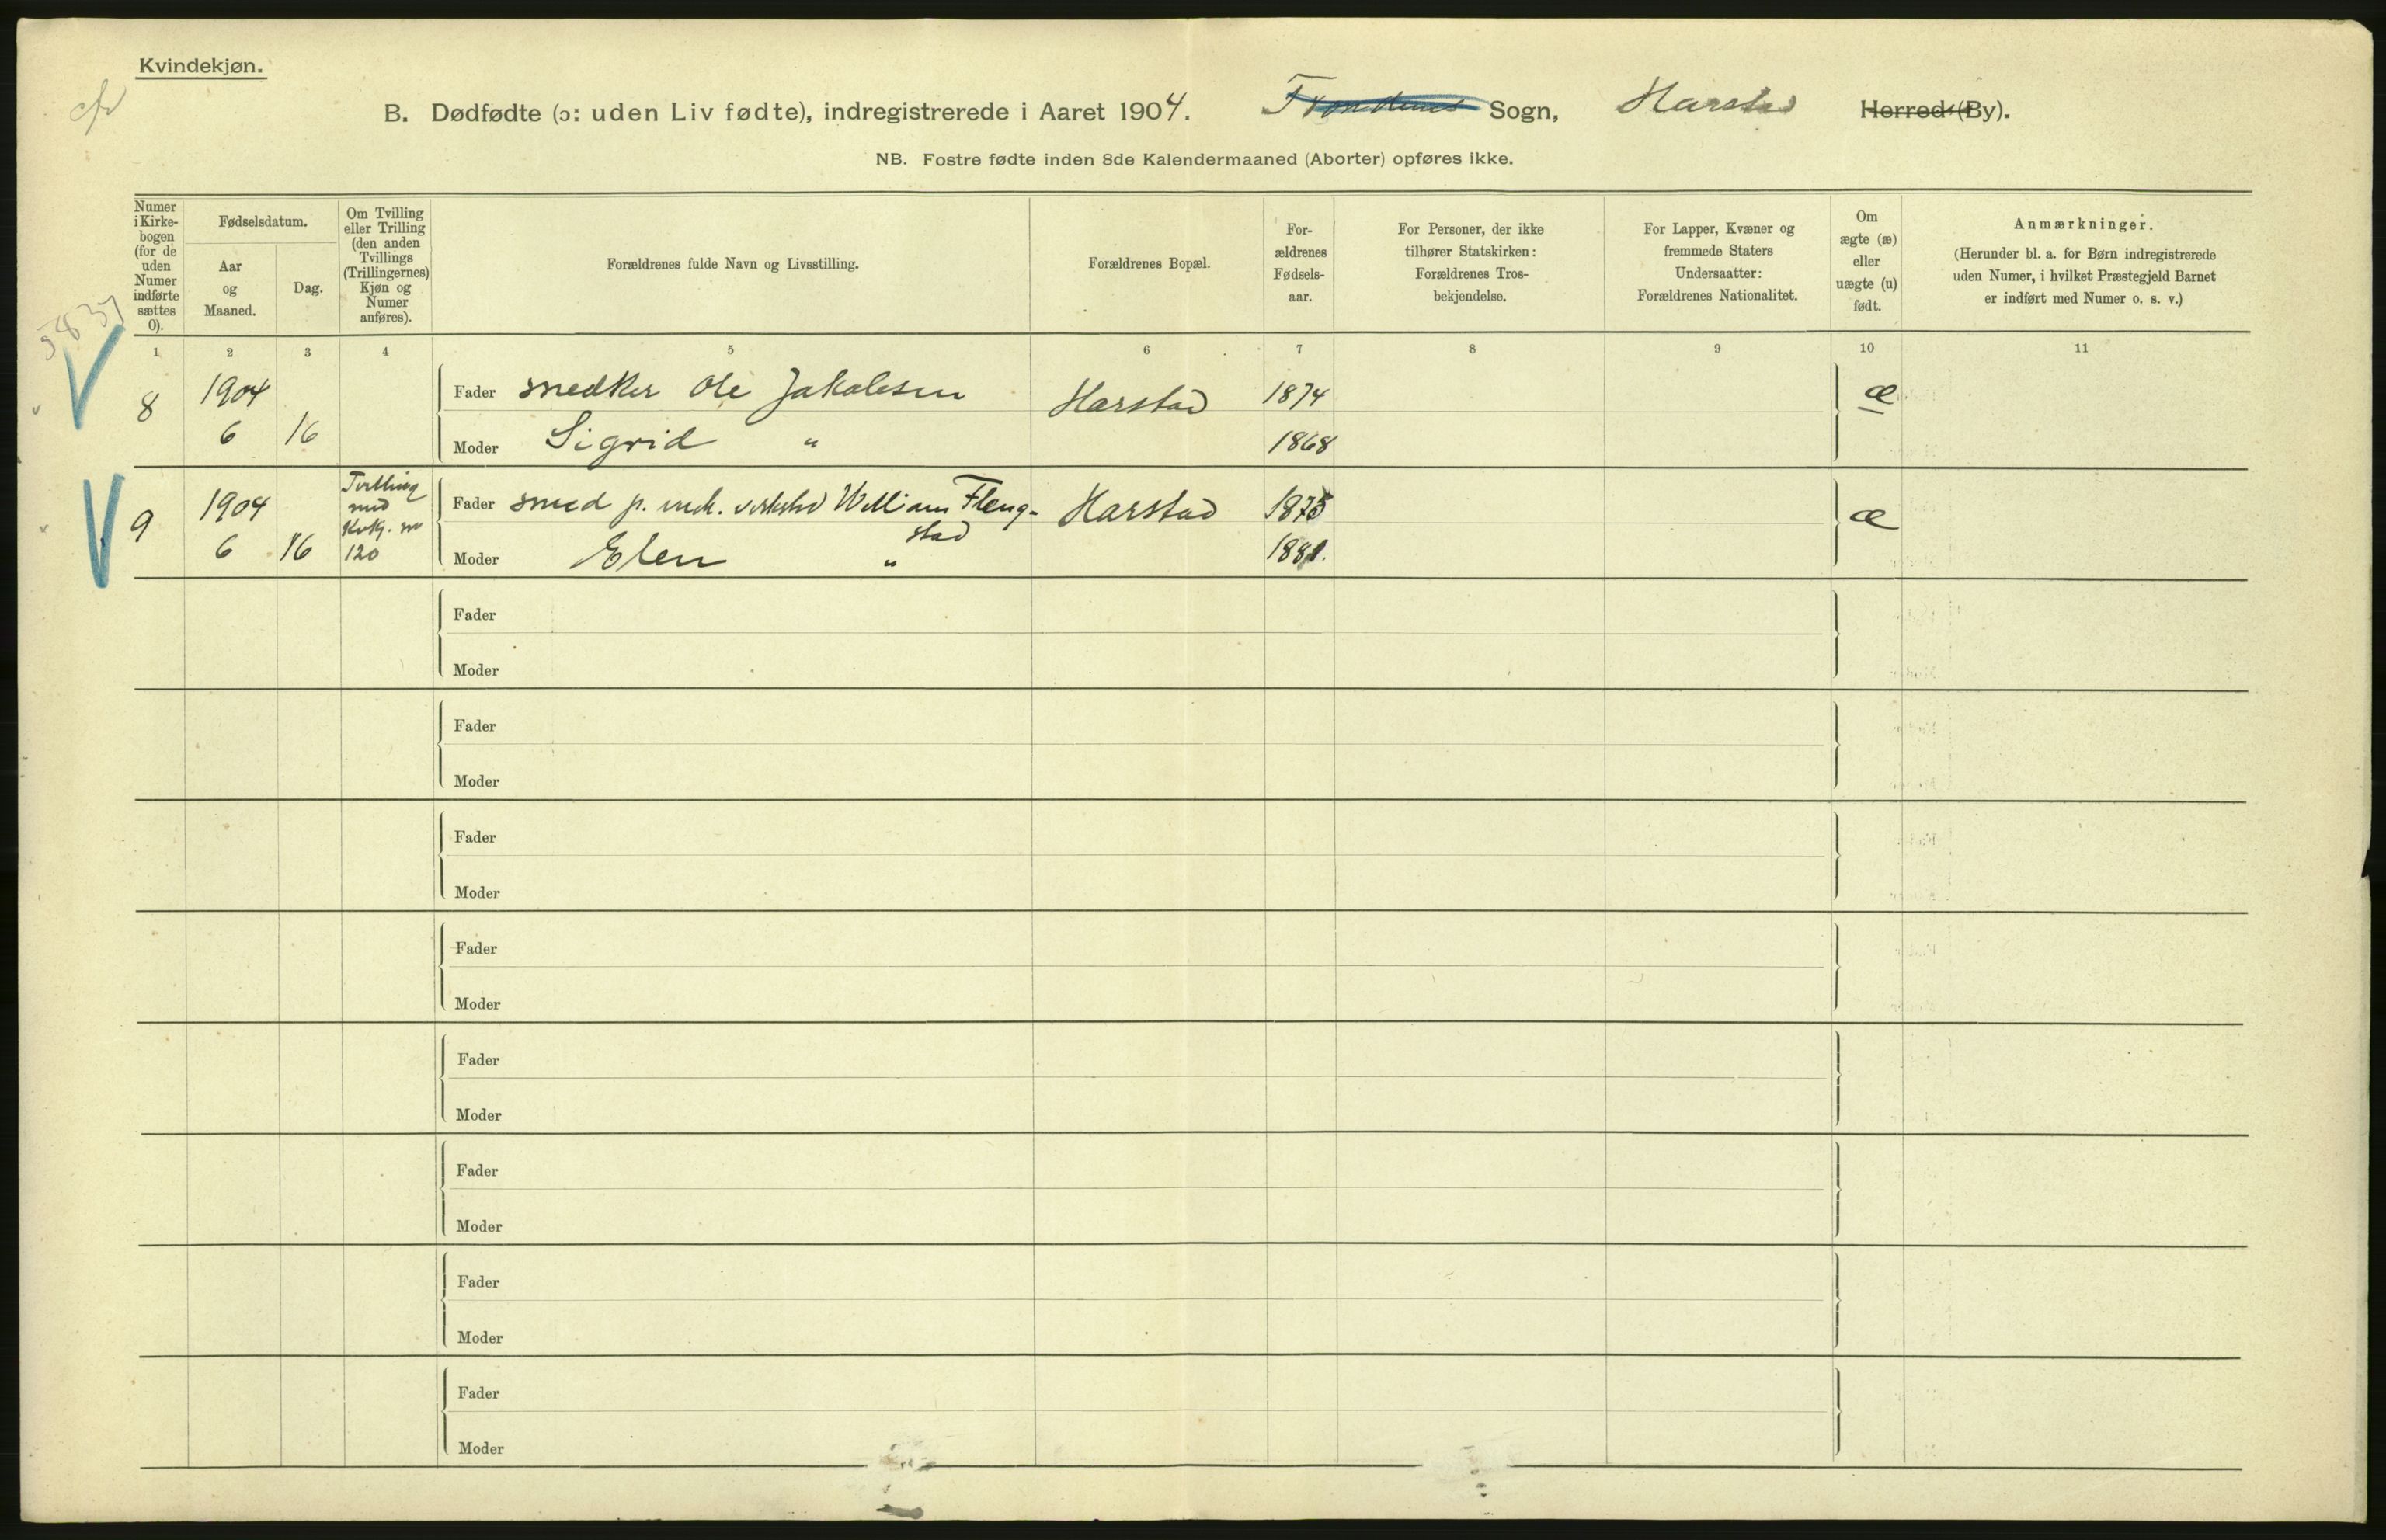 Kvindekjøn.
B. Dødfødte (ɔ: uden Liv fødte), indregistrerede i Aaret 1904. Trondenes Sogn, Harstad Herred (By).
NB. Fostre fødte inden 8de Kalendermaaned (Aborter) opføres ikke.
Numer
i Kirke-
bogen
(for de
uden
Numer
indførte
sættes
0).
Fødselsdatum.
Aar
og
Maaned.
Dag.
Om Tvilling
eller Trilling
(den anden
Tvillings
(Trillingernes)
Kjøn og
Numer
anføres).
Forældrenes fulde Navn og Livsstilling.
Forældrenes Bopæl.
For-
ældrenes
Fødsels-
aar.
For Personer, der ikke
tilhører Statskirken:
Forældrenes Tros-
bekjendelse.
For Lapper, Kvæner og
fremmede Staters
Undersaatter:
Forældrenes Nationalitet.
Om
ægte (æ)
eller
uægte (u)
født.
Anmærkninger.
(Herunder bl. a. for Børn indregistrerede
uden Numer, i hvilket Præstegjeld Barnet
er indført med Numer o. s. v.)
1 2 3 4 5 6 7 8 9 10 11
8 1904 Fader snedker Ole Jakobsen Harstad 1874 æ
6 16 Moder Sigrid " 1868
9 1904 Tvilling med Fader smed p. mek. verksted William Fleng- Harstad 1875 æ
stad
6 16 120 Moder Elen " 1881.
Fader
Moder
Fader
Moder
Fader
Moder
Fader
Moder
Fader
Moder
Fader
Moder
Fader
Moder
Fader
Moder